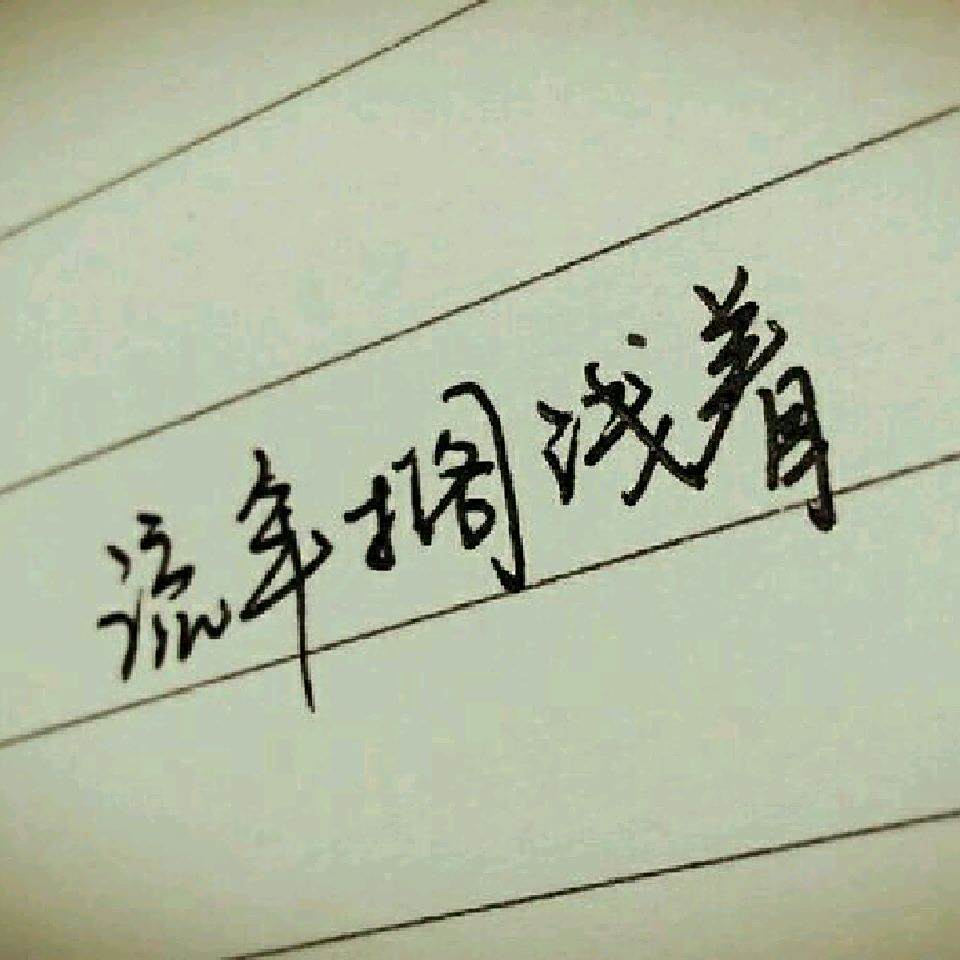 流年搁浅着